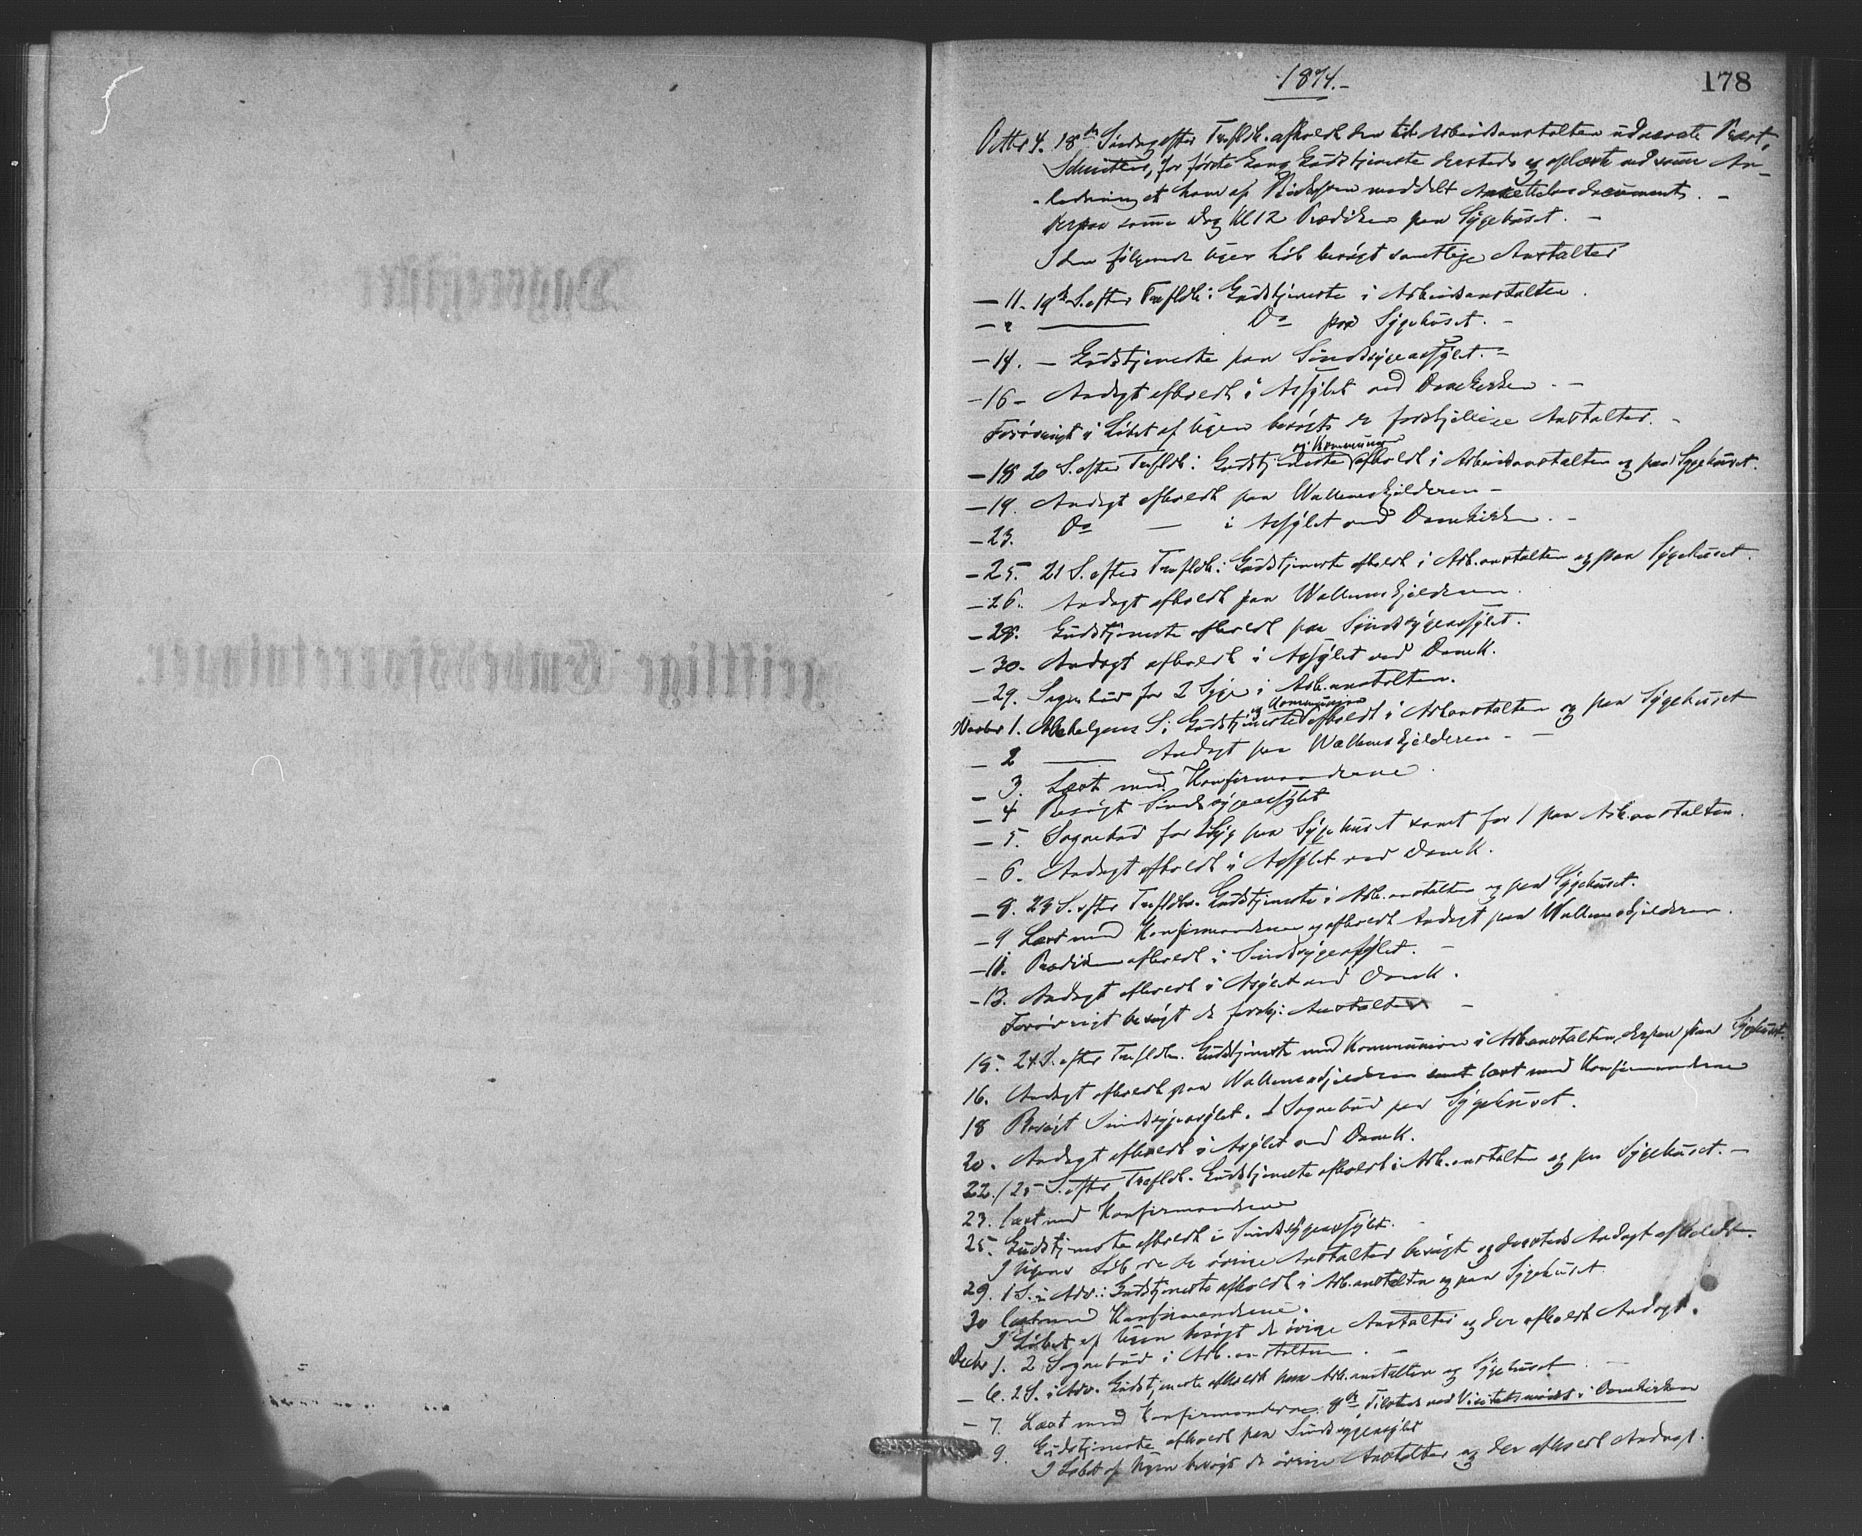 1874.-
178
Octbr 4. 18de Søndag efter Trefldh. afholdt den til Arbeidsanstalten udnævnte Præst,
for første Gang Gudstjeneste dersteds og oplæste ved samme An-
ledning et ham af Biskopen meddelt Ansættelsesdocument. -
Derpaa samme Dag Kl 12 Prædiken paa Sygehuset. -
I den følgende Uges Løb besøgt samtlige Anstalter
- 11. 19de S. efter Trefldh: Gudstjeneste i Arbeidsanstalten.
- " ——— Do paa Sygehuset. -
- 14. - Gudstjeneste paa Sindssygeasylet. -
- 16 - Andagt afholdt i Assylet ved Domkirken. -
Forøvrigt i Løbet af Ugen besøgt de forskjellige Anstalter. -
og Kommunion
- 18 20 S. efter Trefldh: Gudstjeneste afholdt i Arbeidsanstalten og paa Sygehuset.
- 19. Andagt afholdt paa Wallemskjælderen -
- 23. Do — i Assylet ved Domkirken. -
- 25. 21 S. efter Trefldh: Gudstjeneste afholdt i Arb.anstalten og paa Sygehuset.
- 26. Andagt afholdt paa Wallemskjælderen.
- 28. Gudstjeneste afholdt paa Sindssygeassylet.
- 30. Andagt afholdt i Assylet ved Domk.
- 29. Sognebud for 2 Syge i Arb.anstalten.
og Kommunion
Novbr 1. Allehelgens S: Gudstjeneste afholdt i Arb.anstalten og paa Sygehuset
- 2 —— Andagt paa Wallemskjælderen - -
- 3. Læst med Konfirmanderne.
- 4 Besøgt Sindssygeassylet
- 5. Sognebud for Syg paa Sygehuset samt for 1 paa Arb.anstalten.
- 6. Andagt afholdt i Assylet ved Domk.
- 8. 23 S. efter Trefldh. Gudstjeneste i Arb.anstalten og paa Sygehuset.
- 9 Læst med Konfirmanderne og afholdt Andagt paa Wallemskjelderen.
- 11. Prædiken afholdt i Sindssygeassylet. -
- 13. Andagt afholdt i Asylet ved Domk.
Forøvrigt besøgt de forskj: Anstalter -
15. 24 S. efter Trefldh. Gudstjeneste med Kommunion i Arb.anstalten, derpaa paa Sygehuset.
16. Andagt afholdt paa Wallemskjelderen samt læst med Konfirmanderne
18 Besøgt Sindssygeasylet. 1 Sognebud paa Sygehuset.
20. Andagt afholdt i Asylet ved Domk.
22. / 25 S. efter Trefldh. Gudstjeneste afholdt i Arb.anstalten og paa Sygehuset. -
23. læst med Konfirmanderne
25. Gudstjeneste afholdt i Sindssygeassylet.
I Ugens Løb de øvrige Anstalter besøgt og dersteds Andagt afholdt.
29. 1 S. i Adv.: Gudstjeneste afholdt i Arb.anstalten og paa Sygehuset.
30 læst med Konfirmanderne.
I Løbet af Ugen besøgt de øvrige Anstalter og der afholdt Andagt.
Decbr 1. 2 Sognebud i Arb.anstalten. -
- 6. 2 S. i Adv. Gudstjeneste afholdt paa Arb.anstalten og Sygehuset.
- 7. Læst med Konfirmanderne. 8de Tilstede ved Visitatsmødet i Domkirken
9. Gudstjeneste afholdt paa Sindssygeasylet
I Løbet af Ugen besøgt de øvrige Anstalter og der afholdt Andagt.
Dagsregister
geistlige Embedsforretninger.